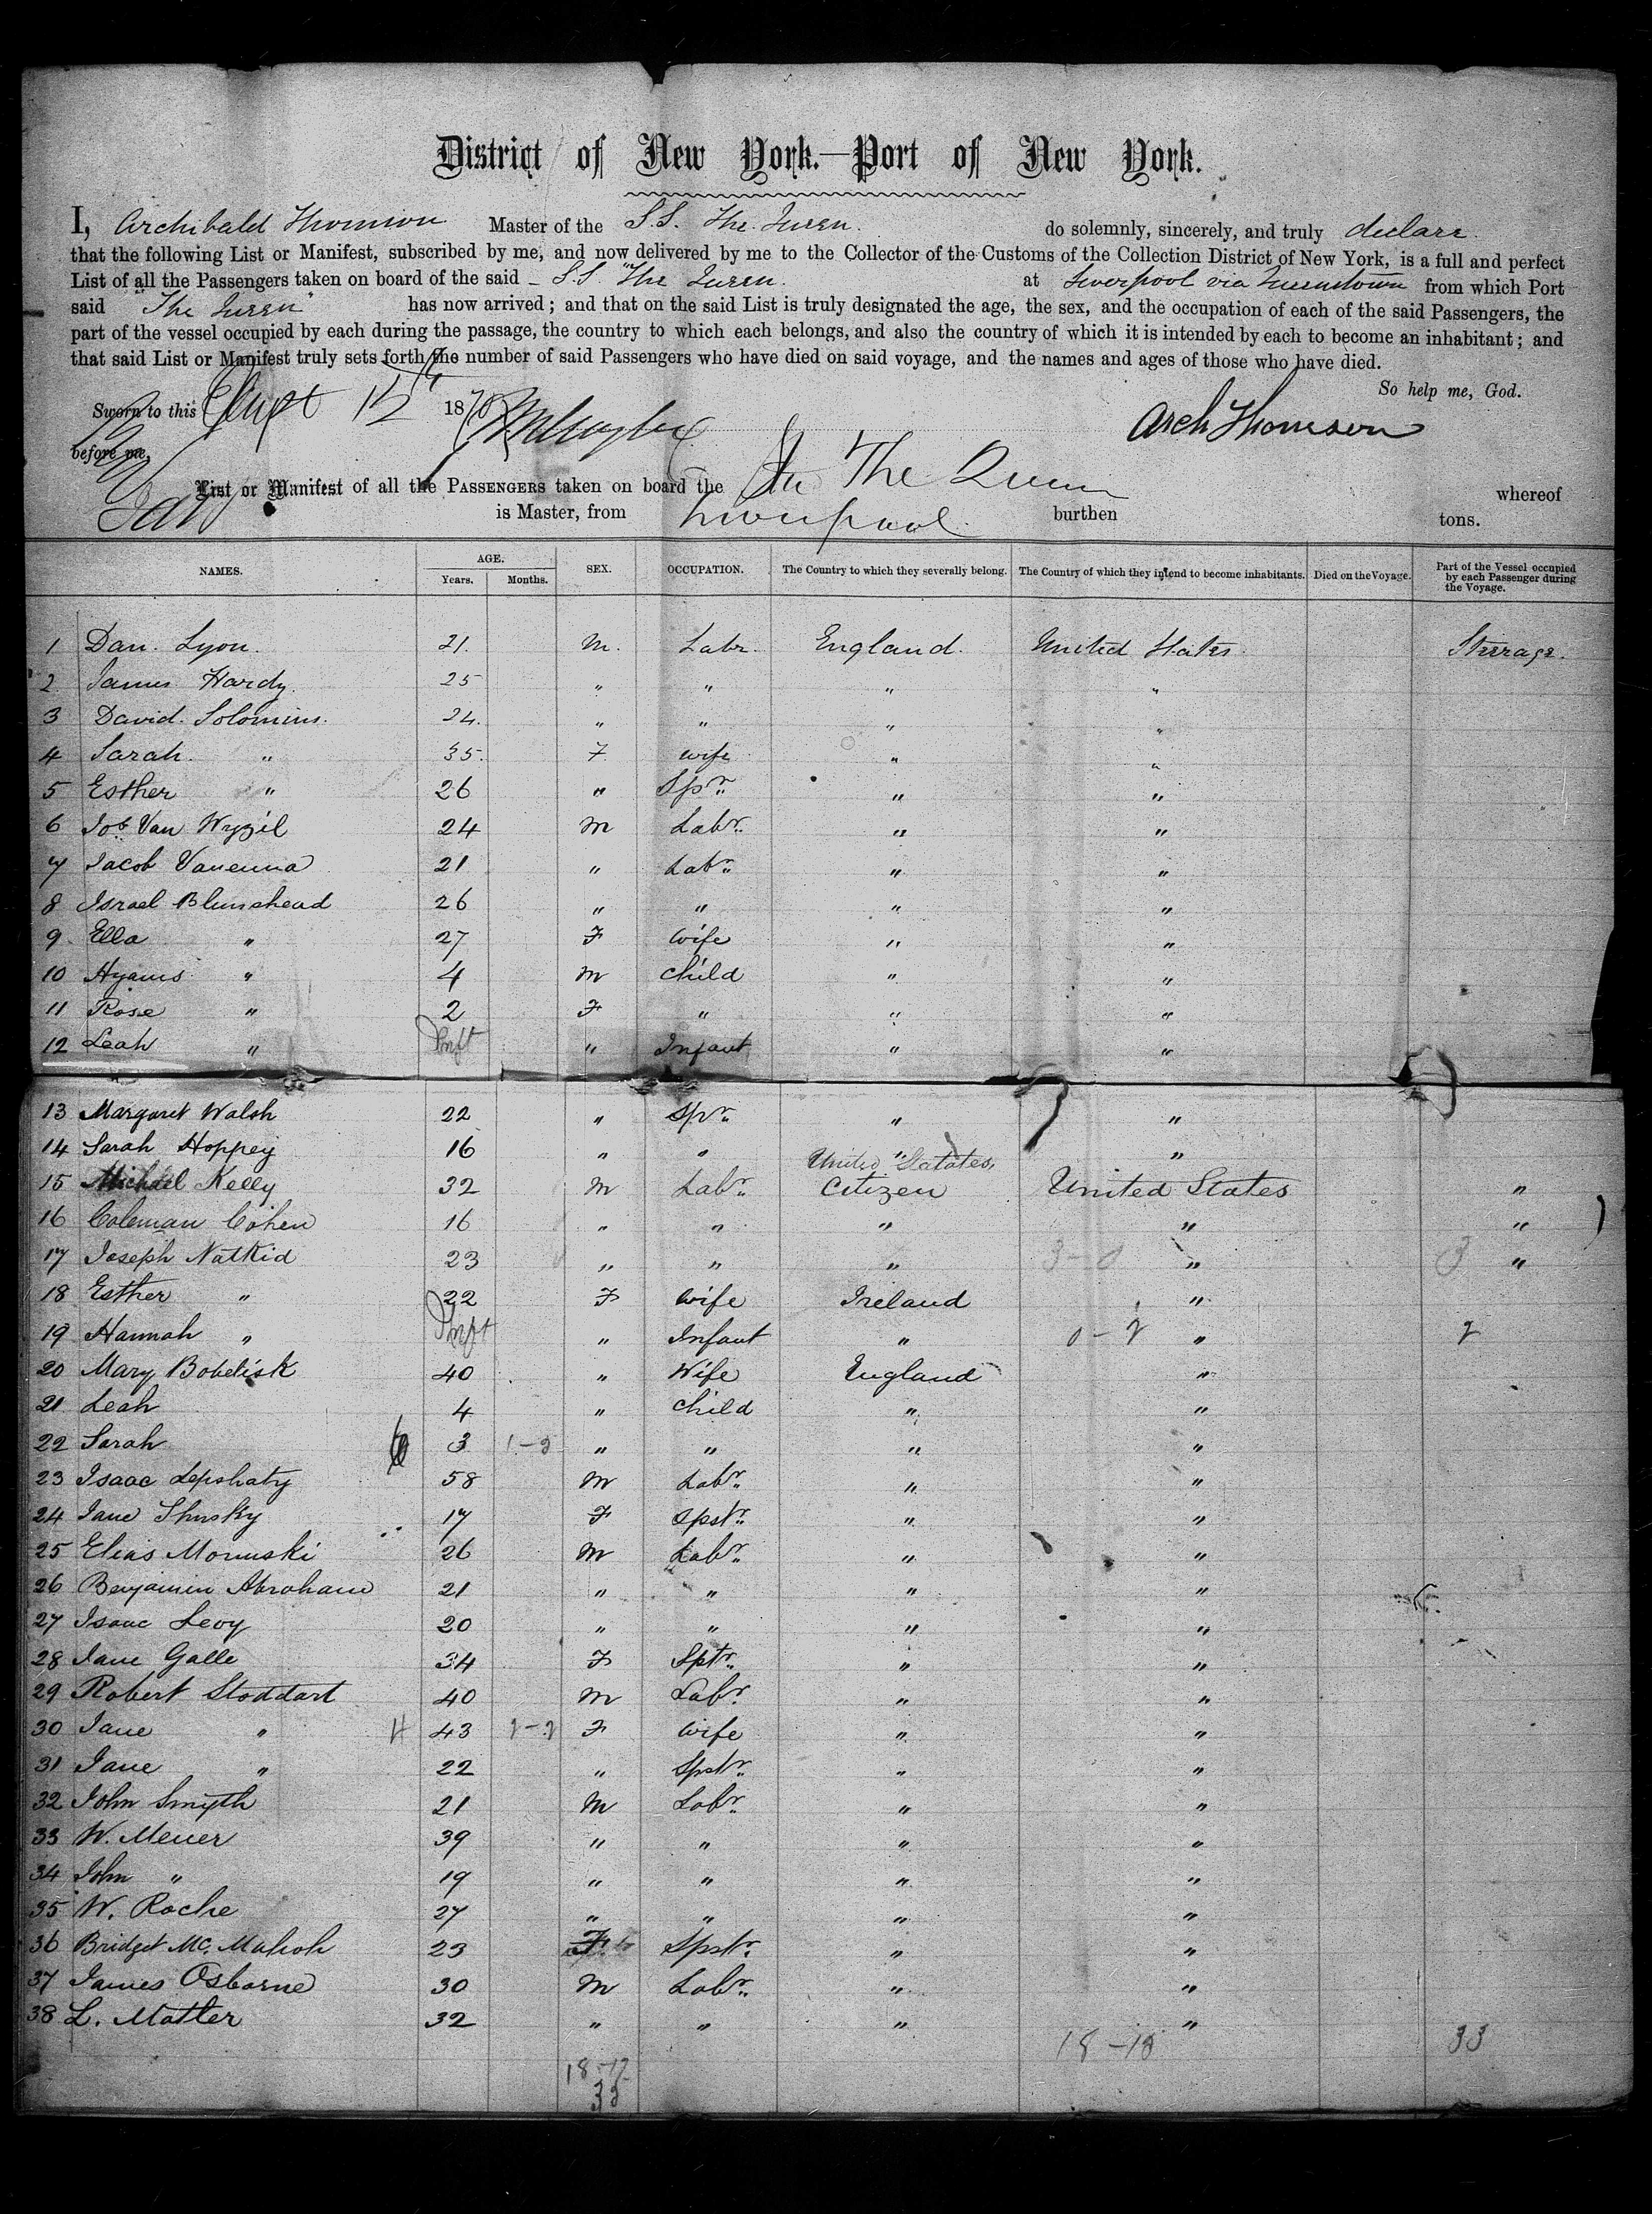 District of New York.—Port of New York.
I, Archibald Thomson Master of the S.S. The Queen. do solemnly, sincerely, and truly declare
that the following List or Manifest, subscribed by me, and now delivered by me to the Collector of the Customs of the Collection District of New York, is a full and perfect
List of all the Passengers taken on board of the said S.S. "The Queen. at Liverpool via Queenstown from which Port
said "The Queen" has now arrived; and that on the said List is truly designated the age, the sex, and the occupation of each of the said Passengers, the
part of the vessel occupied by each during the passage, the country to which each belongs, and also the country of which it is intended by each to become an inhabitant; and
that said List or Manifest truly sets forth the number of said Passengers who have died on said voyage, and the names and ages of those who have died.
So help me, God.
Sworn to this 12 1870
Arch Thomson
before me,
List or Manifest of all the PASSENGERS taken on board the The Queen whereof
is Master, from Liverpool burthen tons.
NAMES. AGE. Years. Months. SEX. OCCUPATION. The Country to which they severally belong. The Country of which they intend to become inhabitants. Died on the Voyage. Part of the Vessel occupied by each Passenger during the Voyage.
1 Dan. Lyon. 21. M. Labr. England. United States. Steerage.
2 James Hardy. 25 " " " "
3 David. Solomins. 24. " " " "
4 Sarah. " 35. F wife " "
5 Esther " 26 " Spr. " "
6 Job Van Wyzil 24 M Labr. " "
7 Jacob Vanenna 21 " Labr. " "
8 Israel Blumshead 26 " " " "
9 Ella " 27 F Wife " "
10 Hyams " 4 M Child " "
11 Rose " 2 F " " "
12 Leah " Inft " Infant " "
13 Margaret Walsh 22 " Spr. " "
14 Sarah Hoppey 16 " " " "
15 Michael Kelly 32 M Labr. United Statates, Citizen United States "
16 Coleman Cohen 16 " " " " "
17 Joseph Natkid 23 " " " 3-0 " 3 "
18 Esther " 22 F Wife Ireland "
19 Hannah " Inft " Infant " 0-2 " 2
20 Mary Bobelisk 40 " Wife England "
21 Leah 4 " Child " "
22 Sarah 3 1-2 " " " "
23 Isaac Lepshaty 58 M Labr. " "
24 Jane Shusky 17 F Spstr. " "
25 Elias Morunski 26 M Labr. " "
26 Benjamin Abraham 21 " " " "
27 Isaac Levy 20 " " " "
28 Jane Galle 34 F Sptr. " "
29 Robert Stoddart 40 M Labr. " "
30 Jane " 4 43 2-2 F Wife " "
31 Jane " 22 " Spstr. " "
32 John Smyth 21 M Labr. " "
33 W. Meuer 39 " " " "
34 John " 19 " " " "
35 W. Roche 27 " " " "
36 Bridget Mc. Mahon 23 F Spstr. " "
37 James Osborne 30 M Labr. " "
38 L. Matler 32 " " " "
18-18 33
18-17
35